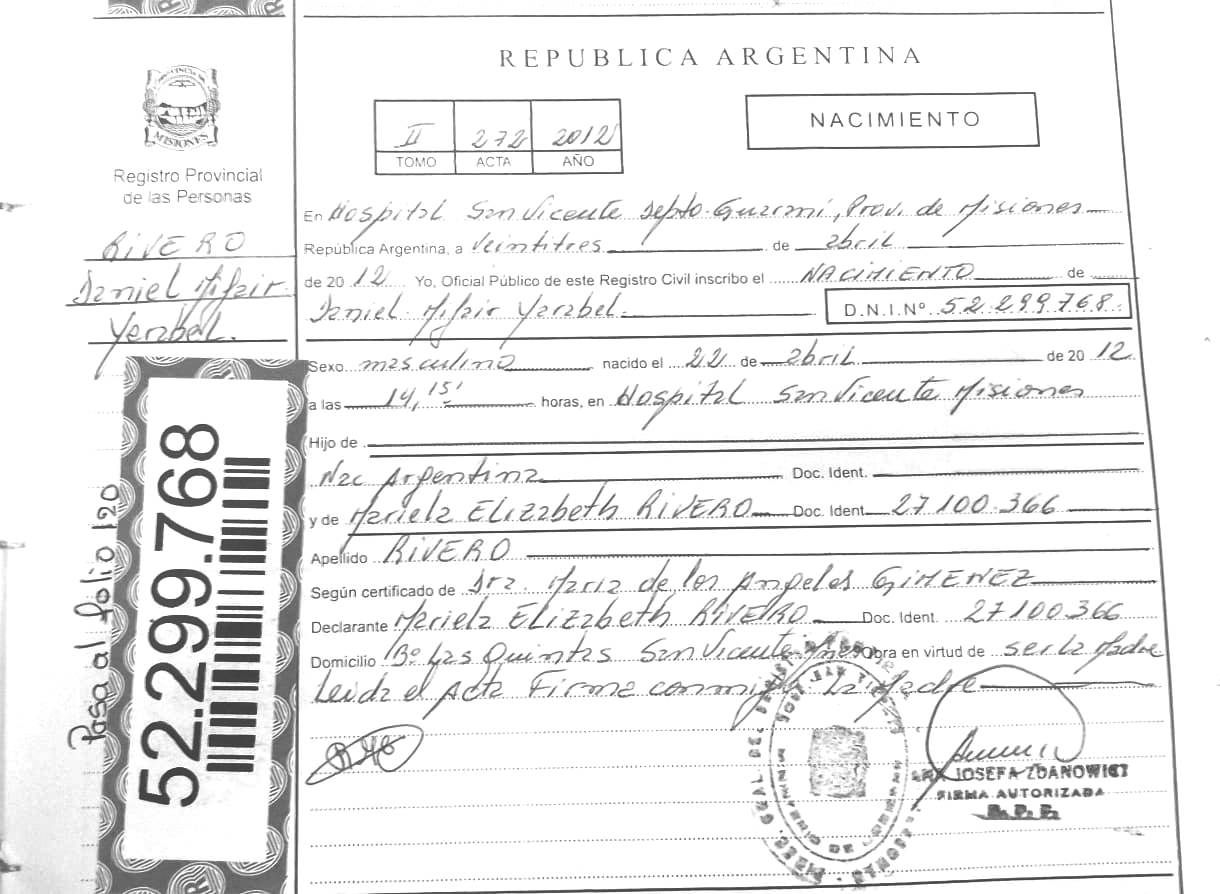 REPUBLICA ARGENTINA
NACIMIENTO
II 272 2012
TOMO ACTA AÑO
PROVINCIA DE
MISIONES
Registro Provincial
de las Personas
RIVERO
Daniel
Yerabel.
En Hospital San Vicente Depto. Guarani, Prov. de Misiones
República Argentina, a Veintitres de abril
de 2012 Yo, Oficial Público de este Registro Civil inscribo el NACIMIENTO de
Daniel Yarabel. D.N.I.Nº 52.299.768.
Sexo masculino nacido el 22 de abril de 2012
a las 14,15' horas, en Hospital San Vicente Misiones
Hijo de
Nac Argentina Doc. Ident.
y de Mariela Elizabeth RIVERO Doc. Ident 27100.366
Apellido RIVERO
Según certificado de Dra. Maria de los Angeles GIMENEZ
Declarante Mariela Elizabeth RIVERO Doc. Ident. 27100.366
Domicilio Bº Las Quintas San Vicente Mnes Obra en virtud de ser la Madre
Leida el Acta Firma conmigo La Madre
52.299.768
Pasa al folio 120
JOSEFA ZDANOWICZ
FIRMA AUTORIZADA